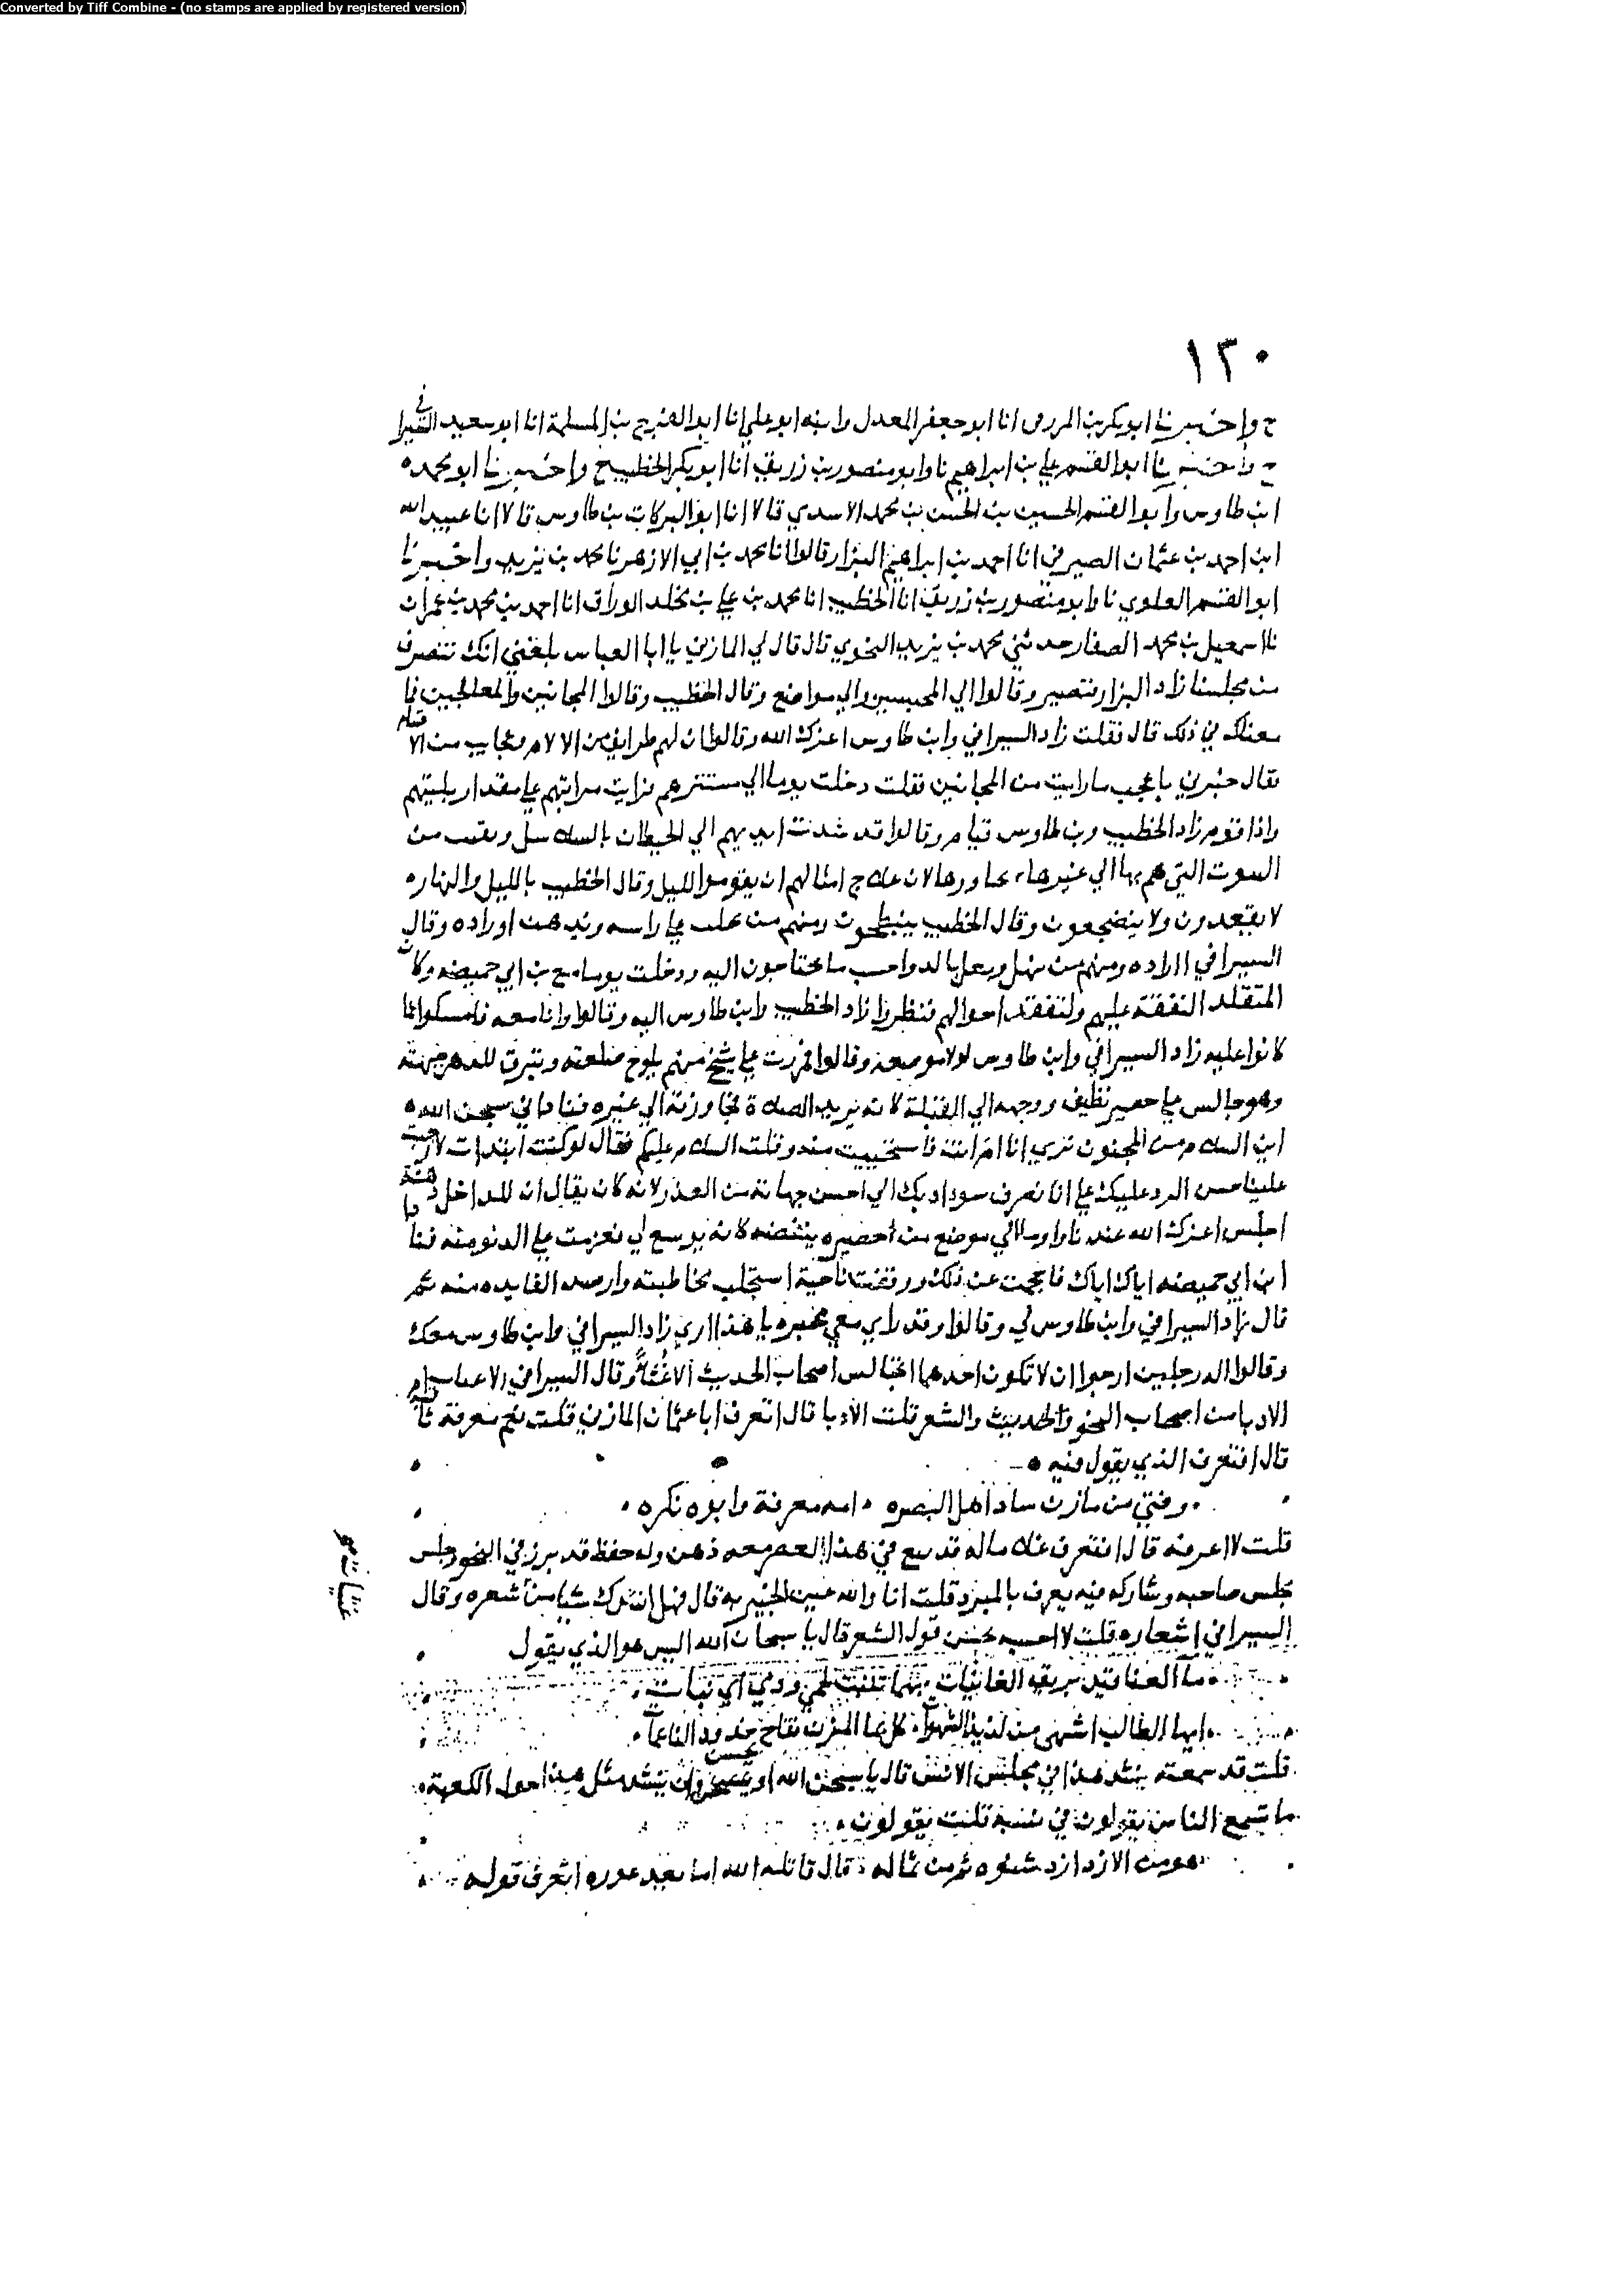 Converted by Tiff Combine - (no stamps are applied by registered version)
١٣٠
ح واخبرنا ابو بكر بن المزرفي انا ابو جعفر المعدل وابنه ابو علي انا ابو الفرج بن المسلمة انا ابو سعيد السيرافي
ح واخبرنا ابو القسم علي بن ابراهيم نا وابو منصور بن زريق انا ابو بكر الخطيب ح واخبرنا ابو محمد
ابن طاوس وابو القسم الحسين بن الحسن بن محمد الاسدي قالا انا ابو البركات بن طاوس قالا انا عبيد الله
ابن احمد بن عثمان الصيرفي انا احمد بن ابراهيم البزار قالوا نا محمد بن ابي الازهر نا محمد بن يزيد واخبرنا
ابو القسم العلوي نا وابو منصور بن زريق انا الخطيب انا محمد بن علي بن مخلد الوراق انا احمد بن محمد بن عمران
نا اسمعيل بن محمد الصفار حدثني محمد بن يزيد النحوي قال قال لي المازني يا ابا العباس بلغني انك تنصرف
من مجلسنا زاد البزار فتصير وقالوا الي المحبسين والي مواضع وقال الخطيب وقالوا المجانين والمعالجين فما
معناك في ذلك قال فقلت زاد السيرافي وابن طاوس اعزك الله وقالوا ان لهم طرايف من الكلام وعجايب من الاقسام
فقال خبرني باعجب ما رايت من المجانين فقلت دخلت يوما الي مستقرهم فرايت مراتبهم علي مقدار بليتهم
واذا قوم زاد الخطيب وبن طاوس قيام وقالوا قد شدت ايديهم الي الحيطان بالسلاسل ونقب من
البيوت التي هم بها الي غيرها مما يجاورها لان علاج امثالهم ان يقوموا الليل وقال الخطيب بالليل والنهار
لا يقعدون ولا يضجعون وقال الخطيب ينبطحون ومنهم من يجلب علي راسه وتدهن اوراده وقال
السيرافي اراده ومنهم من ينهل ويعل بالدوا حسب ما يحتاجون اليه ودخلت يوما مع بن ابي خميصه وكان
المتقلد النفقة عليهم ولتفقد احوالهم فنظروا زاد الخطيب وابن طاوس اليه وقالوا وانا معه فامسكوا عما
كانوا عليه زاد السيرافي وابن طاوس لولا موضعه وقالوا فمررت علي شيخ منهم يلوح صلعته وتبرق للدهن جبهته
وهو جالس علي حصير نظيف ووجهه الي القبلة كانه يريد الصلاة فجاوزته الي غيره فناداني سبحن الله
اين السلام من المجنون تري انا ام انت فاستحييت منه وقلت السلام عليكم فقال لو كنت ابتدات لاوجبت
علينا حسن الرد عليك علي انا نصرف سوادبك الي احسن جهاته من العذر لانه كان يقال ان للداخل دهشة
اجلس اعزك الله عندنا واوما الي موضع من حصيره ينفضه كانه يوسع لي فعزمت علي الدنو منه فنادا
ابن ابي خميصه اياك اياك فاحجمت عن ذلك ووقفت ناحية استجلب مخاطبته وارصد الفايده منه ثم
قال زاد السيرافي وابن طاوس لي وقالوا وقد راي معي محبره يا هذا اري زاد السيرافي وابن طاوس معك
وقالوا الة رجلين ارجوا ان لا تكون احدهما اتجالس اصحاب الحديث الاغثا وقال السيرافي ام
الادبا من اصحاب النحو والحديث والشعر قلت الادبا قال اتعرف ابا عثمان المازني قلت نعم معرفة
قال افتعرف الذي يقول فيه
وفتي من مازن ساد اهل البصره امه معرفة وابوه نكره
قلت لا اعرفه قال افتعرف غلاما له قد نبغ في هذا العصر معه ذهن وله حفظ قد برز في النحو وجلس
مجلس صاحبه وشاركه فيه يعرف بالمبرد قلت انا والله عين الخبير به قال فهل انشدك شيا من شعره وقال
السيرافي اشعاره قلت لا احسبه يحسن قول الشعر قال يا سبحان الله اليس هو الذي يقول
ما العناقيد بريق الغانيات بهما ينبت لحمي ودمي اي نبات
ايها الطالب اشهى من لذيذ الشهوات كل بما المزن تفاح خدود الناعمات
قلت قد سمعته ينشد هذا في مجلس الانس قال يا سبحن الله او يحسن ان ينشد مثل هذا حول الكعبة
ما تسمع الناس يقولون في نسبه قلت يقولون
هو من الازد ازد شنوه ثم من ثماله قال قاتله الله ما ابعد غوره اتعرف قوله